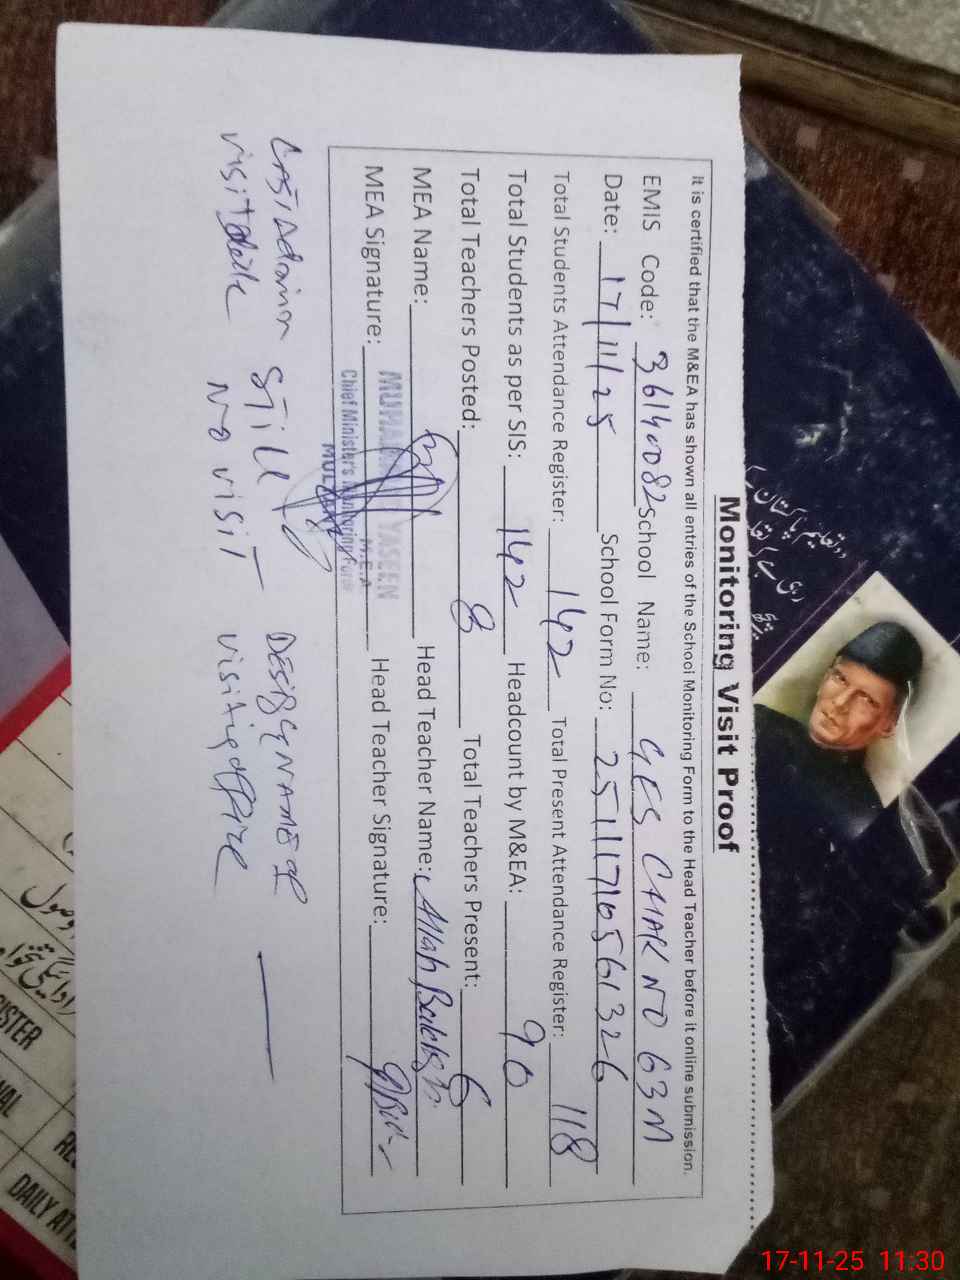 Monitoring Visit Proof
It is certified that the M&EA has shown all entries of the School Monitoring Form to the Head Teacher before it online submission.
EMIS Code: 36140082 School Name: GES CHAK NO 63M
Date: 17/11/25 School Form No: 2511171056 1326
Total Students Attendance Register: 142 Total Present Attendance Register: 118
Total Students as per SIS: 142 Headcount by M&EA: 90
Total Teachers Posted: 8 Total Teachers Present: 6
MEA Name: Head Teacher Name: Allah Bakhsh
MEA Signature: Head Teacher Signature:
MUHAMMAD YASEEN
M.E.A
Chief Minister's Monitoring Force
LAST Admin STILL DESIGNAMEOF
visit date NO visit visiting office
وصول
ادائیگی تنخواہ
DAILY ATTE
17-11-25 11:30